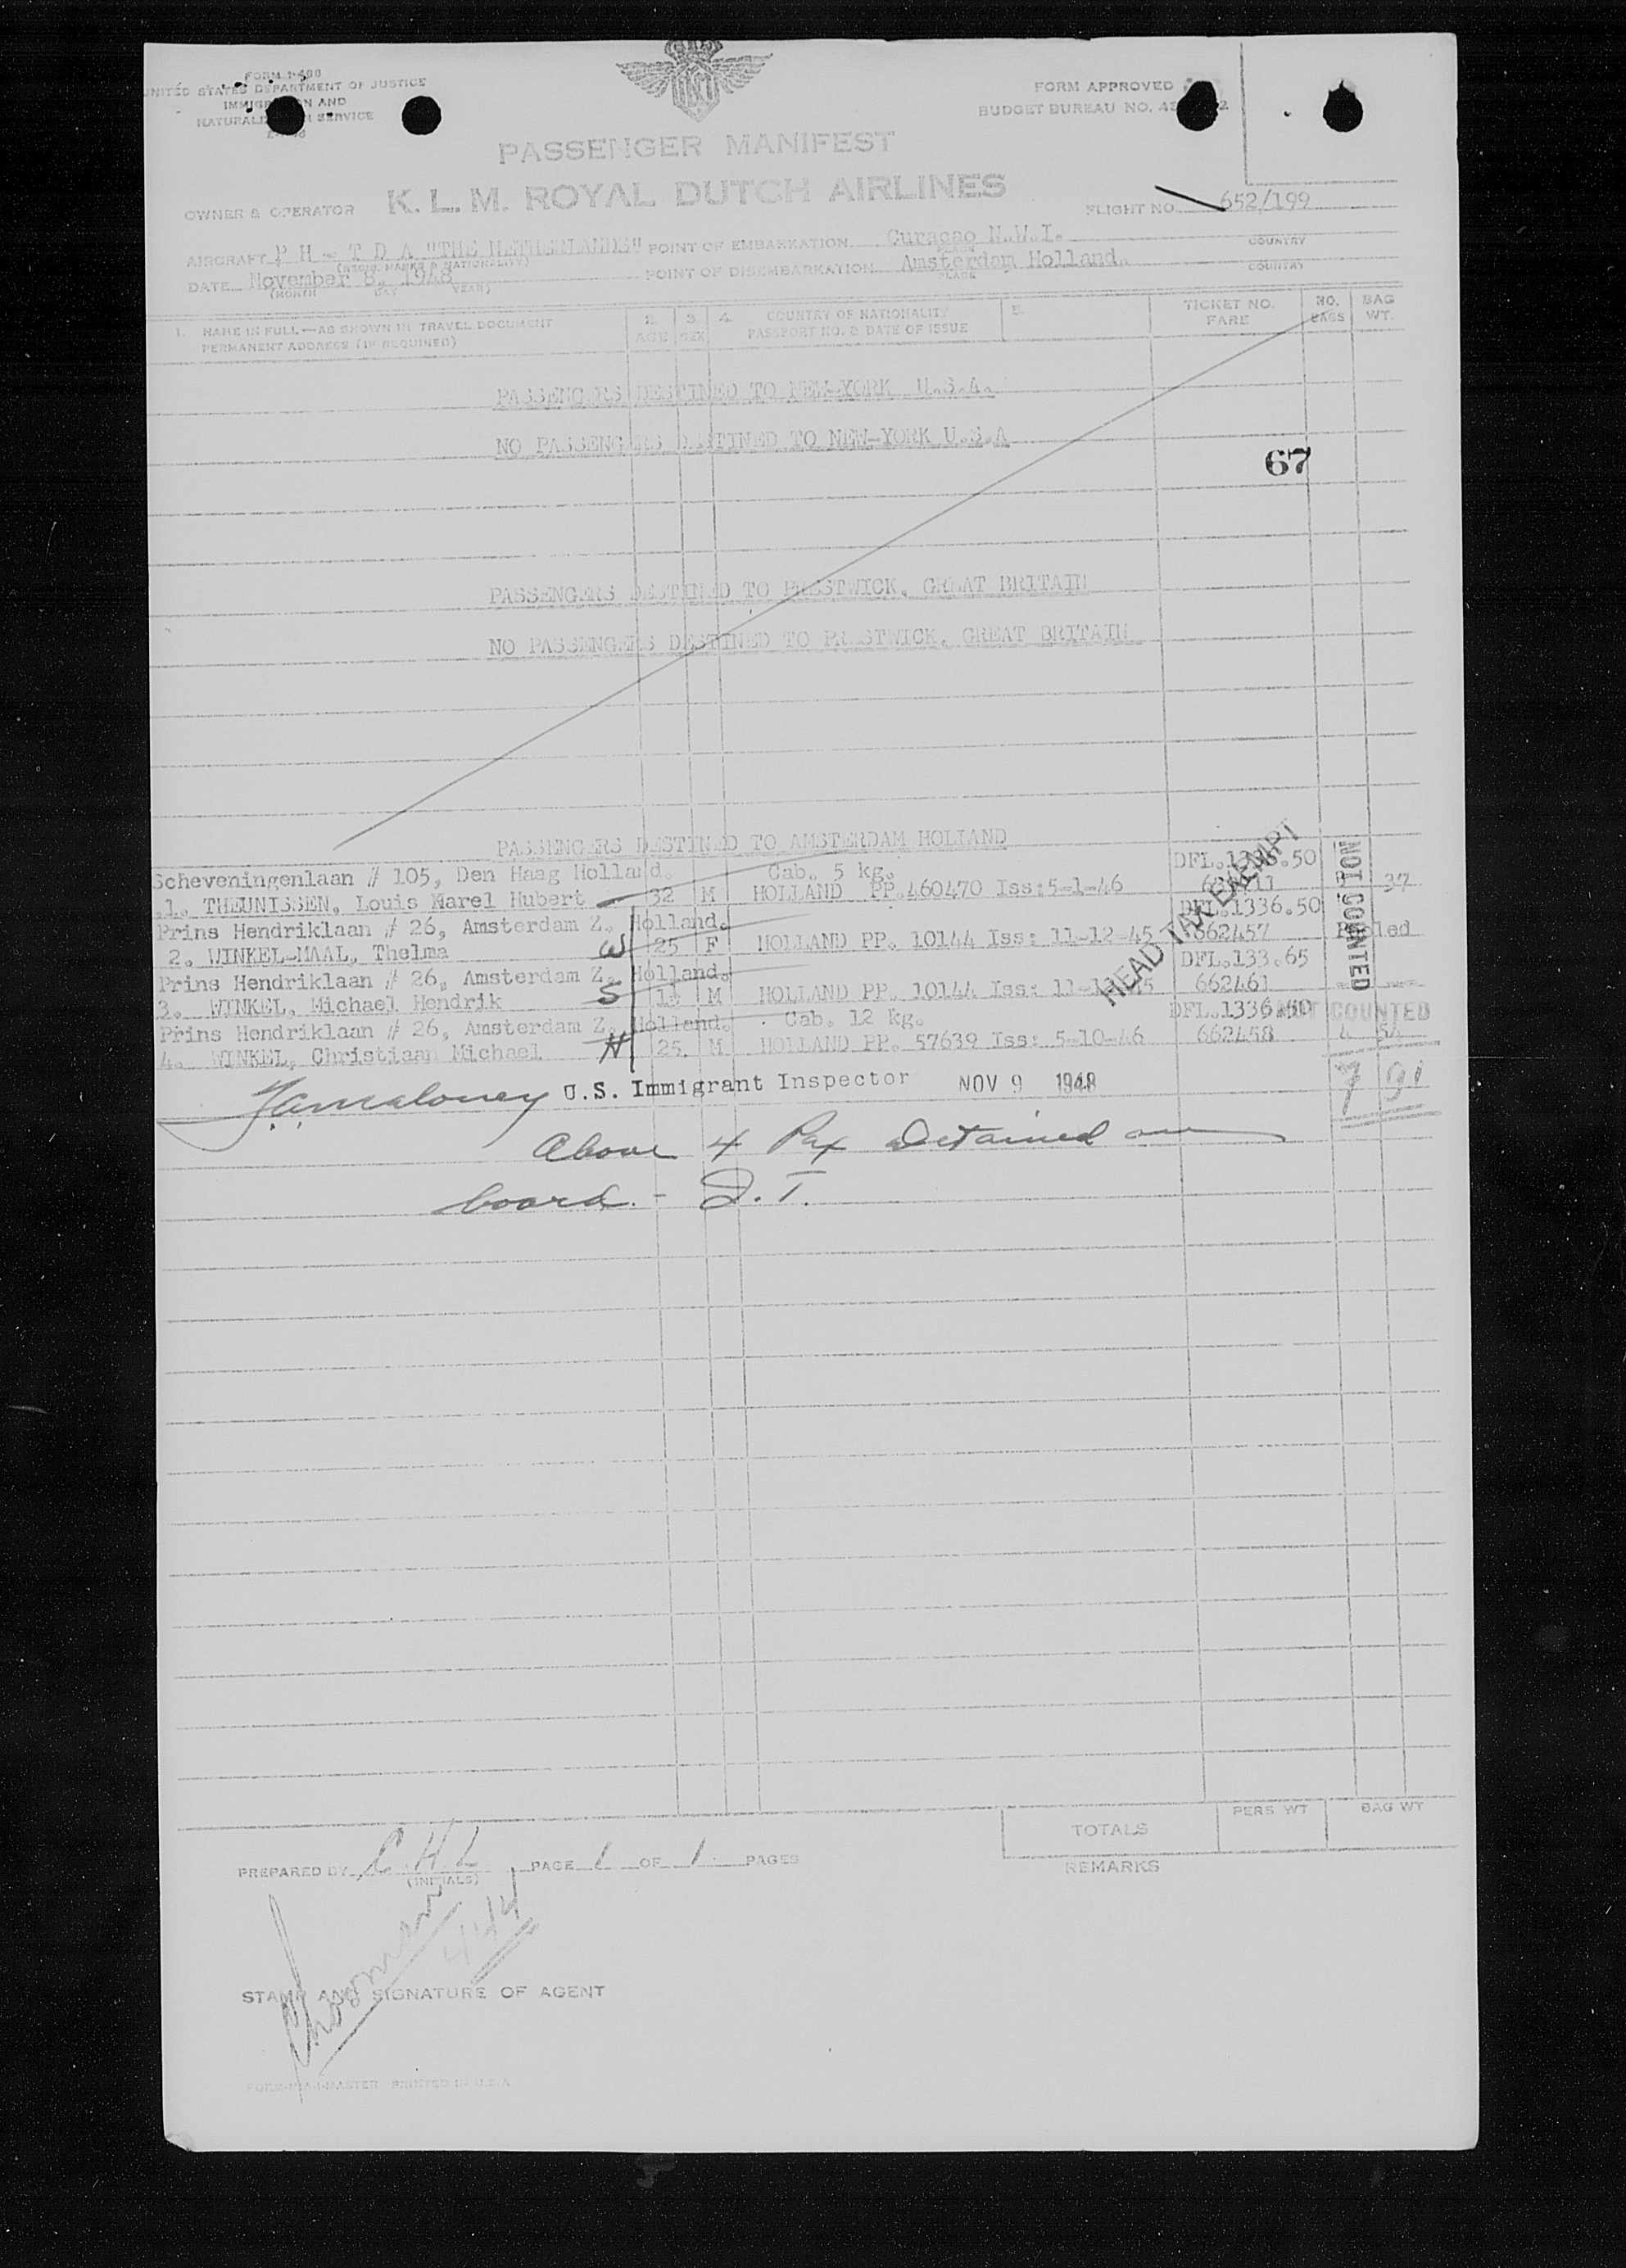 FORM I-466
UNITED STATES DEPARTMENT OF JUSTICE
IMMIGRATION AND
NATURALIZATION SERVICE
FORM APPROVED
BUDGET BUREAU NO.
PASSENGER MANIFEST
OWNER & OPERATOR K. L. M. ROYAL DUTCH AIRLINES
FLIGHT NO. 652/199
AIRCRAFT P H - T D A "THE NETHERLANDS" POINT OF EMBARKATION Curaçao N.W.I.
PLACE COUNTRY
DATE November 8, 1948 POINT OF DISEMBARKATION Amsterdam Holland.
(MONTH DAY YEAR) PLACE COUNTRY
1. NAME IN FULL—AS SHOWN IN TRAVEL DOCUMENT 2. 3. 4. COUNTRY OF NATIONALITY 5. TICKET NO. NO. BAG
PERMANENT ADDRESS (IF REQUIRED) AGE SEX PASSPORT NO. & DATE OF ISSUE FARE BAGS WT.
PASSENGERS DESTINED TO NEW-YORK U.S.A.
NO PASSENGERS DESTINED TO NEW-YORK U.S.A
67
PASSENGERS DESTINED TO PRESTWICK, GREAT BRITAIN
NO PASSENGERS DESTINED TO PRESTWICK, GREAT BRITAIN
PASSENGERS DESTINED TO AMSTERDAM HOLLAND
Scheveningenlaan # 105, Den Haag Holland. Cab. 5 kg. DFL.1336.50
1. THEUNISSEN, Louis Marel Hubert 32 M HOLLAND PP.460470 Iss:5-1-46 37
Prins Hendriklaan # 26, Amsterdam Z. Holland. DFL.1336.50
2. WINKEL-MAAL, Thelma W 25 F HOLLAND PP. 10144 Iss: 11-12-45 662457 Pooled
Prins Hendriklaan # 26, Amsterdam Z. Holland. DFL.133.65
3. WINKEL, Michael Hendrik S M HOLLAND PP. 10144 Iss: 11-12-45 662461
Prins Hendriklaan # 26, Amsterdam Z. Holland. Cab. 12 kg. DFL.1336.50
4. WINKEL, Christiaan Michael H 25 M HOLLAND PP. 57639 Iss: 5-10-46 662458 4 54
HEAD TAX EXEMPT
NOT COUNTED
NOT COUNTED
7 91
U.S. Immigrant Inspector NOV 9 1948
Above 4 Pax Detained on
board. - I.T.
PERS WT BAG WT
TOTALS
PREPARED BY C.H.L PAGE 1 OF 1 PAGES
(INITIALS)
REMARKS
STAMP AND SIGNATURE OF AGENT